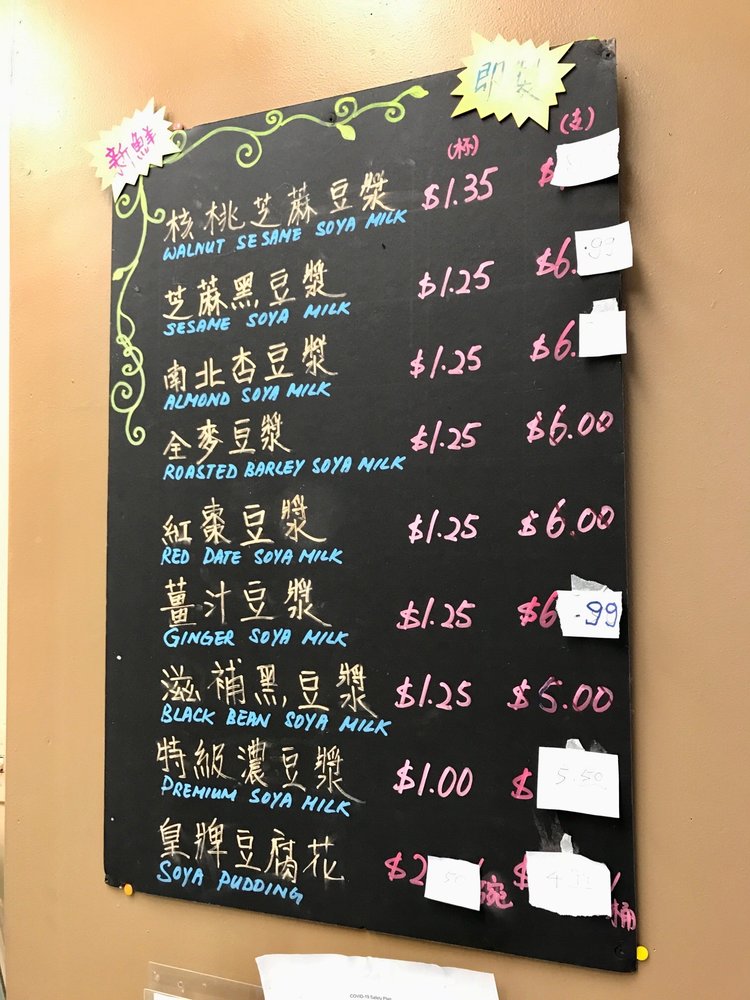 新鮮
即製
(杯) (支)
核桃芝蔴豆漿 $1.35 $
WALNUT SESAME SOYA MILK
芝蔴黑豆漿 $1.25 $6.99
SESAME SOYA MILK
南北杏豆漿 $1.25 $6.
ALMOND SOYA MILK
全麥豆漿 $1.25 $6.00
ROASTED BARLEY SOYA MILK
紅棗豆漿 $1.25 $6.00
RED DATE SOYA MILK
薑汁豆漿 $1.25 $6.99
GINGER SOYA MILK
滋補黑豆漿 $1.25 $5.00
BLACK BEAN SOYA MILK
特級濃豆漿 $1.00 $5.50
PREMIUM SOYA MILK
皇牌豆腐花 $2.50/碗 $ /桶
SOYA PUDDING
COVID-19 Safety Plan